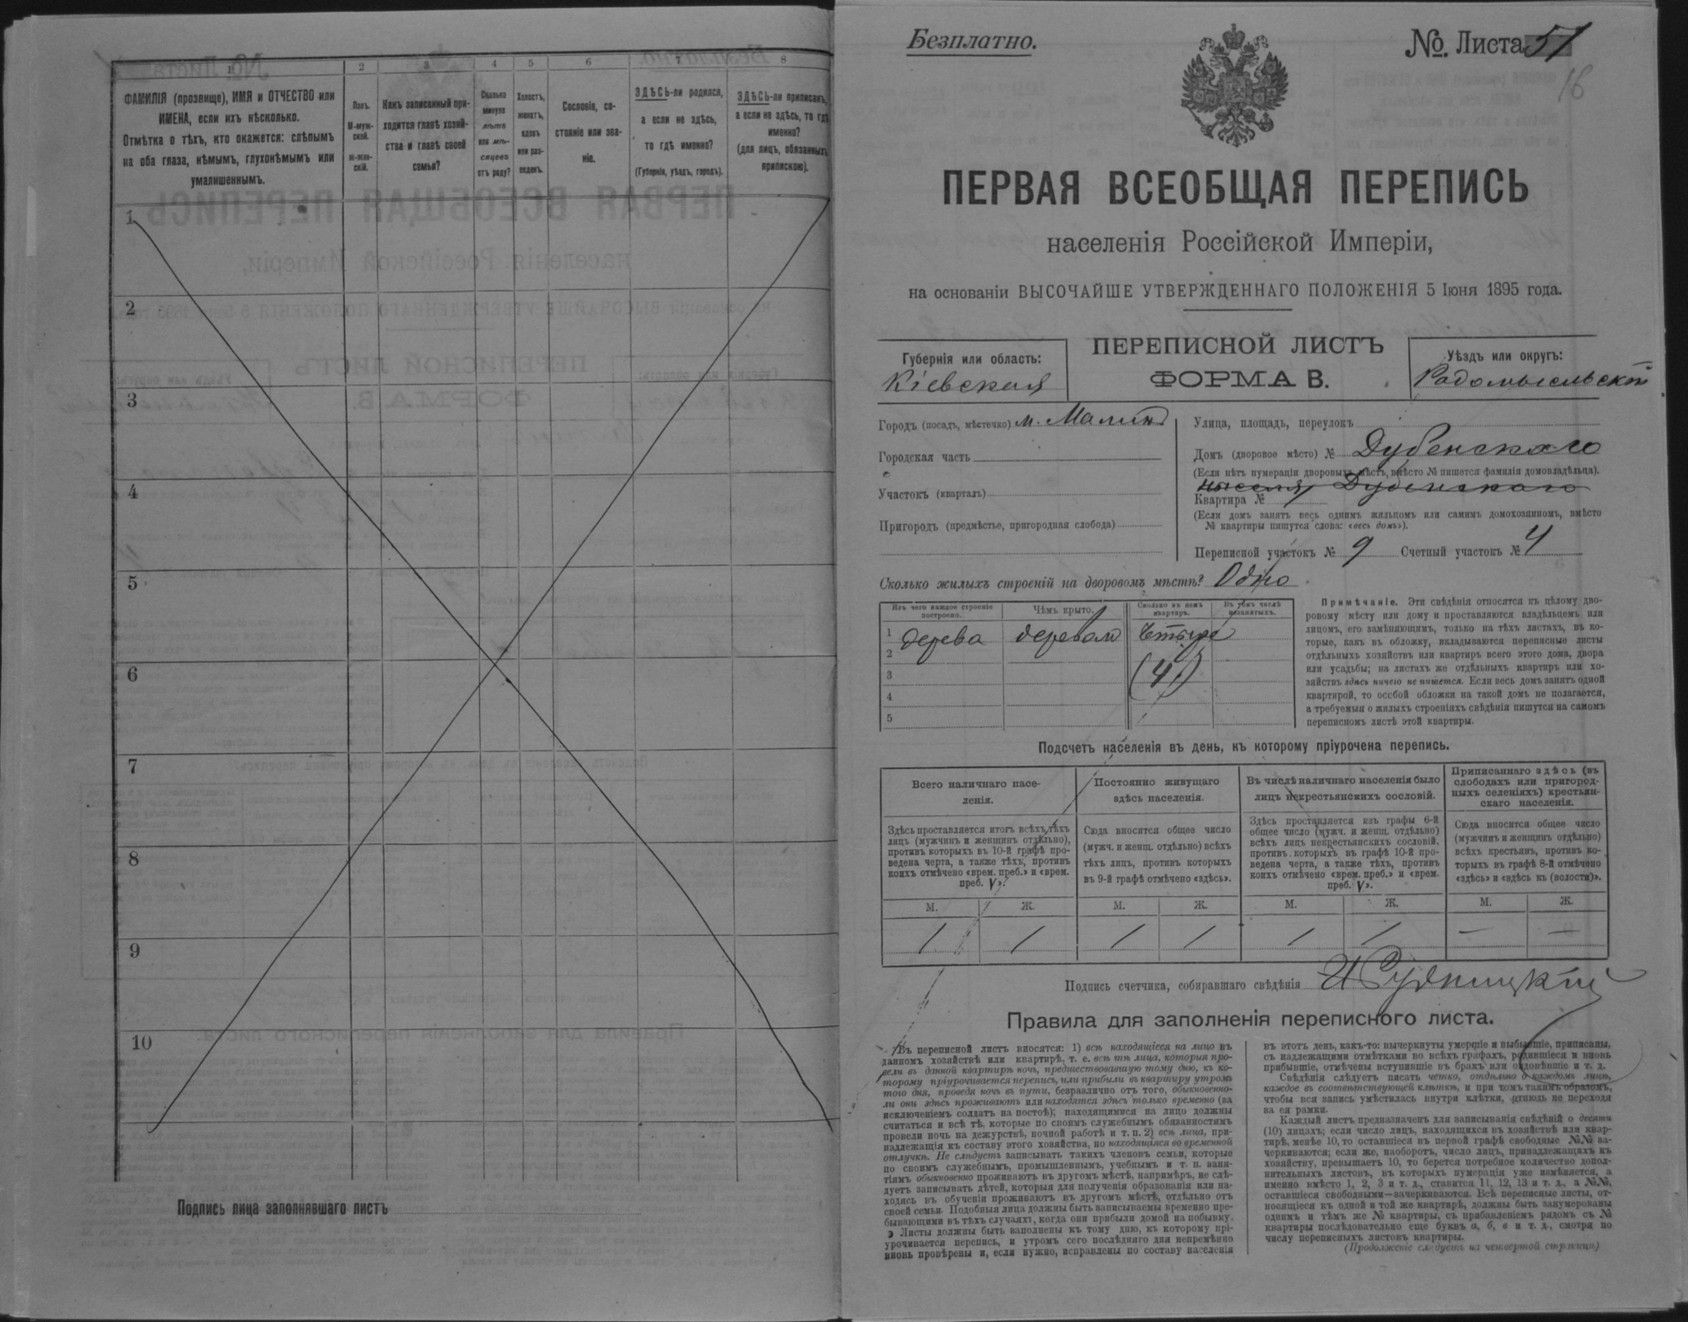 1 2 3 4 5 6 7 8
ФАМИЛІЯ (прозвище), ИМЯ и ОТЧЕСТВО или
ИМЕНА, если ихъ нѣсколько.
Отмѣтка о тѣхъ, кто окажется: слѣпымъ
на оба глаза, нѣмымъ, глухонѣмымъ или
умалишеннымъ.
Полъ.
М-муж-
ской.
Ж-жен-
скій.
Какъ записанный при-
ходится главѣ хозяй-
ства и главѣ своей
семьи?
Сколько
минуло
лѣтъ
или мѣ-
сяцевъ
отъ роду?
Холостъ,
женатъ,
вдовъ
или раз-
веденъ.
Сословіе, со-
стояніе или зва-
ніе.
ЗДѢСЬ-ли родился,
а если не здѣсь,
то гдѣ именно?
(Губернія, уѣздъ, городъ).
ЗДѢСЬ-ли приписанъ,
а если не здѣсь, то гдѣ
именно?
(для лицъ, обязанныхъ
припискою).
1
2
3
4
5
6
7
8
9
10
Подпись лица заполнявшаго листъ
Безплатно.
№. Листа 51
16
ПЕРВАЯ ВСЕОБЩАЯ ПЕРЕПИСЬ
населенія Россійской Имперіи,
на основаніи ВЫСОЧАЙШЕ УТВЕРЖДЕННАГО ПОЛОЖЕНІЯ 5 Іюня 1895 года.
Губернія или область:
Кіевская
ПЕРЕПИСНОЙ ЛИСТЪ
ФОРМА В.
Уѣздъ или округъ:
Радомысльскій
Городъ (посадъ, мѣстечко) м. Малинъ
Городская часть
Участокъ (кварталъ)
Пригородъ (предмѣстье, пригородная слобода)
Улица, площадь, переулокъ
Домъ (дворовое мѣсто) № Дубенскаго
(Если нѣтъ нумераціи дворовыхъ мѣстъ, вмѣсто № пишется фамилія домовладѣльца).
Дубенскаго
Квартира №
(Если домъ занятъ весь однимъ жильцомъ или самимъ домохозяиномъ, вмѣсто
№ квартиры пишутся слова: «весь домъ»).
Переписной участокъ № 9 Счетный участокъ № 4
Сколько жилыхъ строеній на дворовомъ мѣстѣ? Одно
Изъ чего каждое строеніе
построено.
Чѣмъ крыто.
Сколько въ немъ
квартиръ.
Въ томъ числѣ
незанятыхъ.
1 дерева деревом Четыре
2
3 (4)
4
5
Примѣчаніе. Эти свѣдѣнія относятся къ цѣлому дво-
ровому мѣсту или дому и проставляются владѣльцемъ или
лицомъ, его замѣняющимъ, только на тѣхъ листахъ, въ ко-
торые, какъ въ обложку, вкладываются переписные листы
отдѣльныхъ хозяйствъ или квартиръ всего этого дома, двора
или усадьбы; на листахъ же отдѣльныхъ квартиръ или хо-
зяйствъ здѣсь ничего не пишется. Если весь домъ занятъ одной
квартирой, то особой обложки на такой домъ не полагается,
а требуемыя о жилыхъ строеніяхъ свѣдѣнія пишутся на самомъ
переписномъ листѣ этой квартиры.
Подсчетъ населенія въ день, къ которому пріурочена перепись.
Всего наличнаго насе-
ленія.
Постоянно живущаго
здѣсь населенія.
Въ числѣ наличнаго населенія было
лицъ некрестьянскихъ сословій.
Приписаннаго здѣсь (въ
слободахъ или пригород-
ныхъ селеніяхъ) крестьян-
скаго населенія.
Здѣсь проставляется итогъ всѣхъ тѣхъ
лицъ (мужчинъ и женщинъ отдѣльно),
противъ которыхъ въ 10-й графѣ про-
ведена черта, а также тѣхъ, противъ
коихъ отмѣчено «врем. преб.» и «врем.
преб. V».
Сюда вносится общее число
(мужч. и женщ. отдѣльно) всѣхъ
тѣхъ лицъ, противъ которыхъ
въ 9-й графѣ отмѣчено «здѣсь».
Здѣсь проставляется изъ графы 6-й
общее число (мужч. и женщ. отдѣльно)
всѣхъ лицъ некрестьянскихъ сословій,
противъ которыхъ въ графѣ 10-й про-
ведена черта, а также тѣхъ, противъ
коихъ отмѣчено «врем. преб.» и «врем.
преб. V».
Сюда вносится общее число
(мужчинъ и женщинъ отдѣльно)
всѣхъ крестьянъ, противъ ко-
торыхъ въ графѣ 8-й отмѣчено
«здѣсь» и «здѣсь къ (волости)».
М. Ж. М. Ж. М. Ж. М. Ж.
1 1 1 1 1 1 — —
Подпись счетчика, собиравшаго свѣдѣнія И Рудницкій
Правила для заполненія переписного листа.
Въ переписной листъ вносятся: 1) всѣ находящіеся на лицо въ
данномъ хозяйствѣ или квартирѣ, т. е. всѣ тѣ лица, которыя про-
вели въ данной квартирѣ ночь, предшествовавшую тому дню, къ ко-
торому пріурочивается перепись, или прибыли въ квартиру утромъ
того дня, проведя ночь въ пути, безразлично отъ того, обыкновенно-
ли они здѣсь проживаютъ или находятся здѣсь только временно (за
исключеніемъ солдатъ на постоѣ); находящимися на лицо должны
считаться и всѣ тѣ, которые по своимъ служебнымъ обязанностямъ
провели ночь на дежурствѣ, ночной работѣ и т. п. 2) всѣ лица, при-
надлежащія къ составу этого хозяйства, но находящіяся во временной
отлучкѣ. Не слѣдуетъ записывать такихъ членовъ семьи, которые
по своимъ служебнымъ, промышленнымъ, учебнымъ и т. п. заня-
тіямъ обыкновенно проживаютъ въ другомъ мѣстѣ, напримѣръ, не слѣ-
дуетъ записывать дѣтей, которыя для полученія образованія или на-
ходясь въ обученіи проживаютъ въ другомъ мѣстѣ, отдѣльно отъ
своей семьи. Подобныя лица должны быть записываемы временно пре-
бывающими въ тѣхъ случаяхъ, когда они прибыли домой на побывку.
Листы должны быть заполнены къ тому дню, къ которому прі-
урочивается перепись, и утромъ сего послѣдняго дня непремѣнно
вновь провѣрены и, если нужно, исправлены по составу населенія
въ этотъ день, какъ-то: вычеркнуты умершіе и выбывшіе, приписаны,
съ надлежащими отмѣтками во всѣхъ графахъ, родившіеся и вновь
прибывшіе, отмѣчены вступившіе въ бракъ или овдовѣвшіе и т. д.
Свѣдѣнія слѣдуетъ писать четко, отдѣльно о каждомъ лицѣ,
каждое въ соотвѣтствующей клѣткѣ, и при томъ такимъ образомъ,
чтобы вся запись умѣстилась внутри клѣтки, отнюдь не переходя
за ея рамки.
Каждый листъ предназначенъ для записыванія свѣдѣній о десяти
(10) лицахъ; если число лицъ, находящихся въ хозяйствѣ или квар-
тирѣ, менѣе 10, то оставшіеся въ первой графѣ свободные №№ за-
черкиваются; если же, наоборотъ, число лицъ, принадлежащихъ къ
хозяйству, превышаетъ 10, то берется потребное количество допол-
нительныхъ листовъ, въ которыхъ нумерація уже измѣняется, а
именно вмѣсто 1, 2, 3 и т. д., ставится 11, 12, 13 и т. д., а №№,
оставшіеся свободными—зачеркиваются. Всѣ переписные листы, от-
носящіеся къ одной и той же квартирѣ, должны быть занумерованы
однимъ и тѣмъ же № квартиры, съ прибавленіемъ рядомъ съ №
квартиры послѣдовательно еще буквъ а, б, в и т. д., смотря по
числу переписныхъ листовъ квартиры.
(Продолженіе слѣдуетъ на четвертой страницѣ)